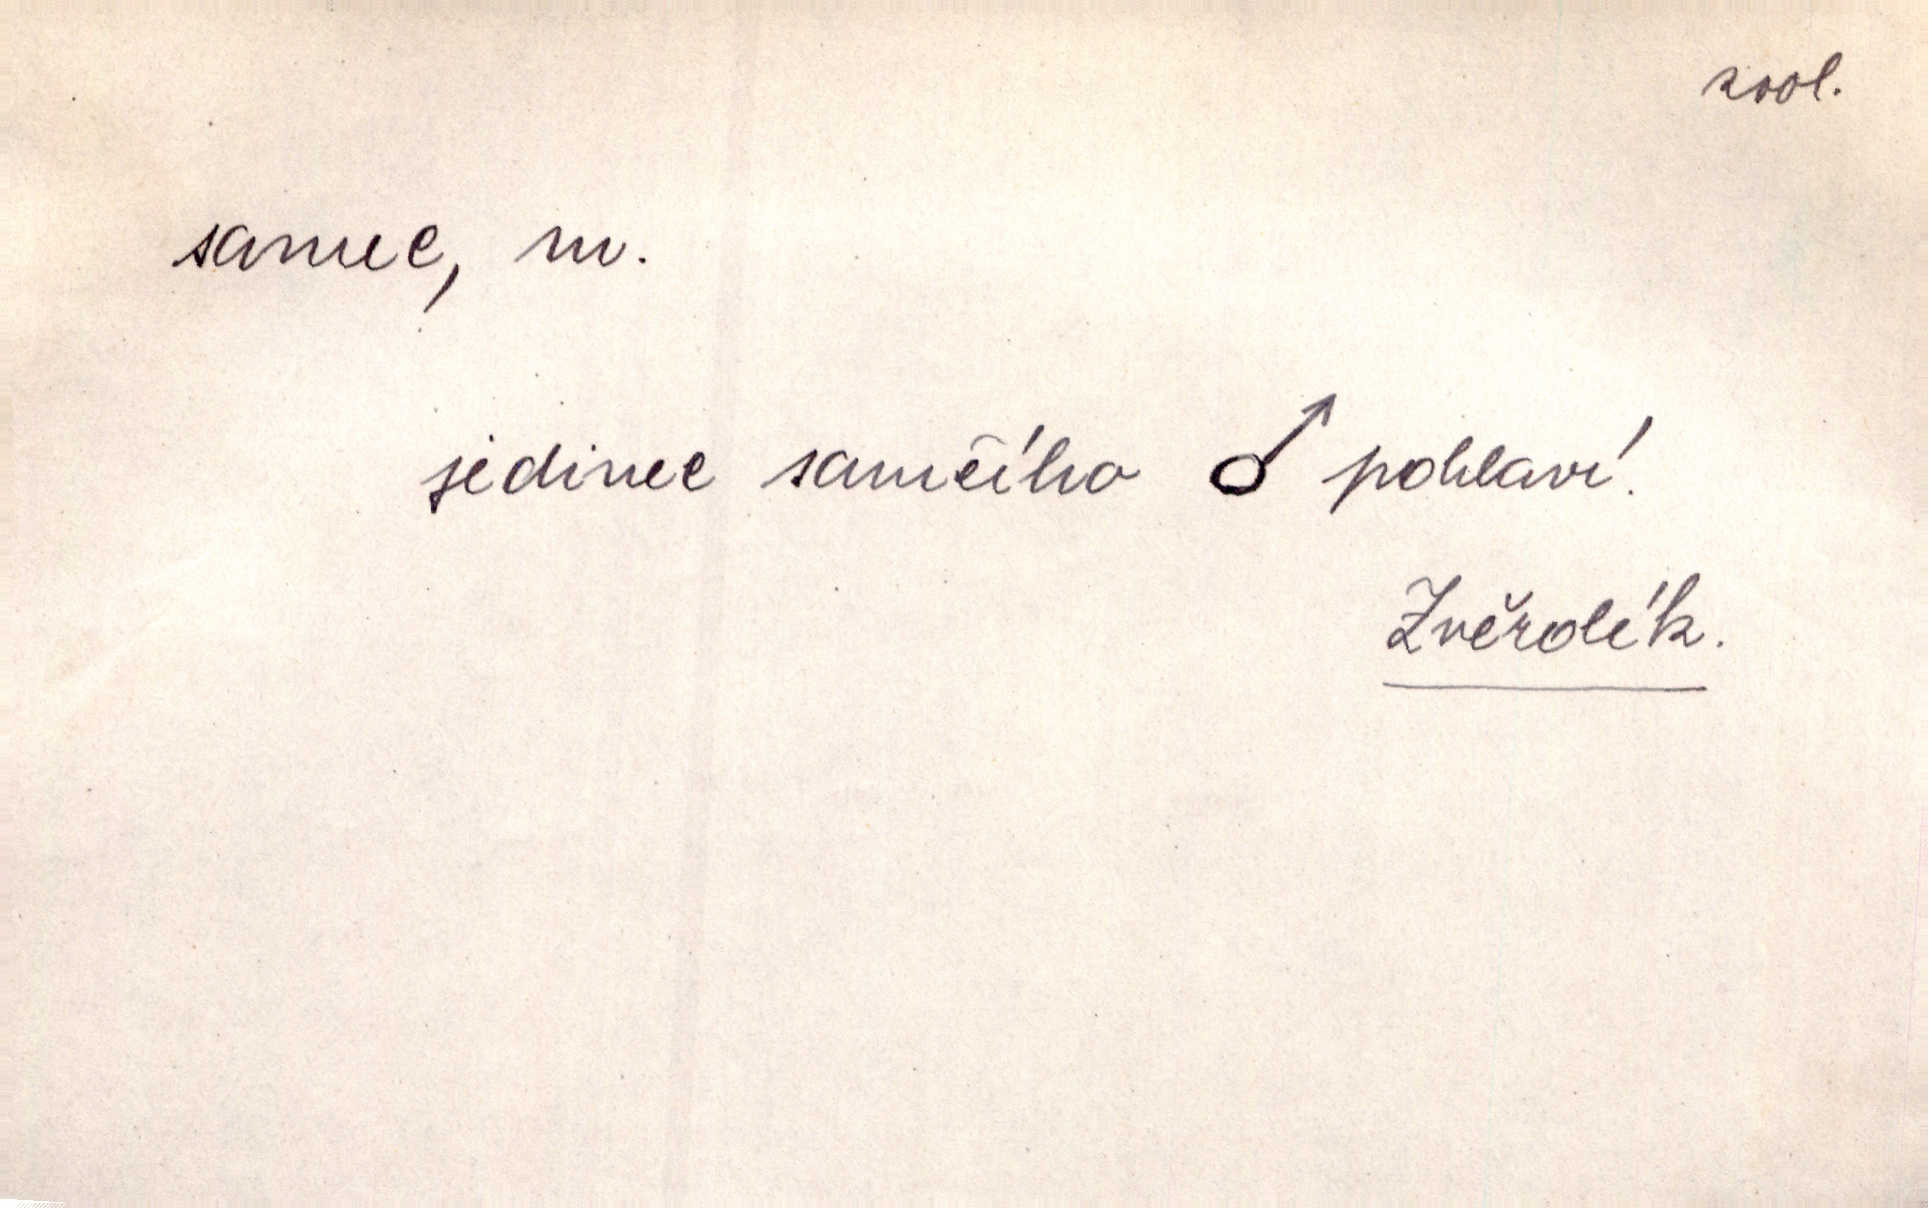 zool.
samec, m.
jedinec samčího ♂ pohlaví.
Zvěrolék.